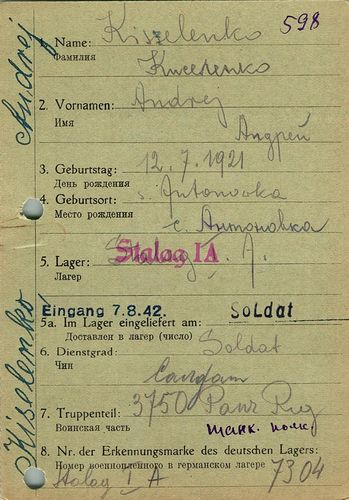 598
Name: Kiszelenko
Фамилия
Киселенко
2. Vornamen: Andrej
Имя
Андрей
3. Geburtstag: 12.7.1921
День рождения
4. Geburtsort: s. Antonovka
Место рождения
с. Антоновка
5. Lager: Stalag I. A.
Stalag IA
Лагерь
Eingang 7.8.42. SOLDAT
5a. Im Lager eingeliefert am:
Доставлен в лагерь (число)
6. Dienstgrad: Soldat
Чин
Солдат
7. Truppenteil: 3750 Panz Reg
Воинская часть
танк. полк.
8. Nr. der Erkennungsmarke des deutschen Lagers:
Номер военнопленного в германском лагере
Stalag I A 7304
Kiselenko Andrej